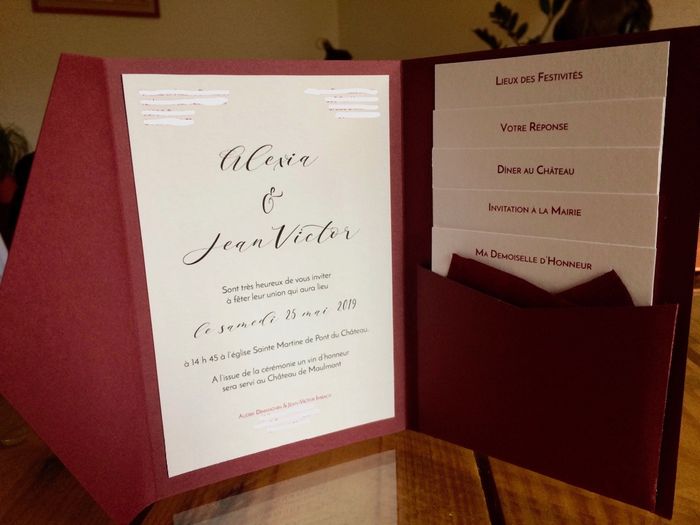 Alexia
&
Jean Victor
Sont très heureux de vous inviter
à fêter leur union qui aura lieu
le samedi 25 mai 2019
à 14 h 45 à l'église Sainte Martine de Pont du Château.
A l'issue de la cérémonie un vin d'honneur
sera servi au Château de Maulmont
& Jean-Victor
Lieux des Festivités
Votre Réponse
Dîner au Château
Invitation à la Mairie
Ma Demoiselle d'Honneur